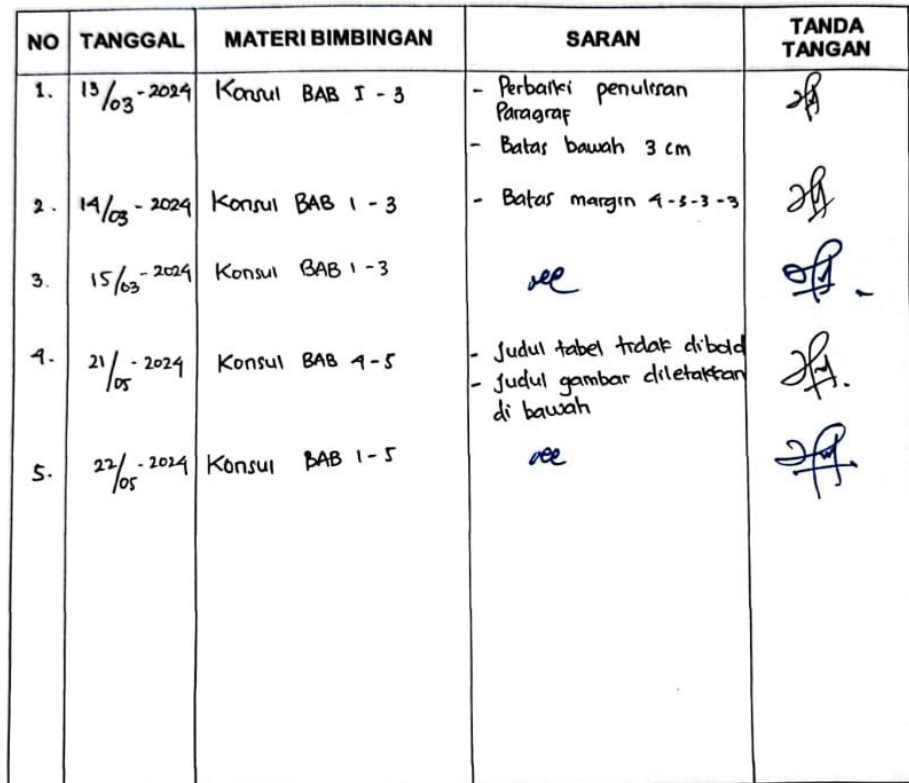 NO TANGGAL MATERI BIMBINGAN SARAN TANDA TANGAN
1. 13/03-2024 Konsul BAB I - 3 - Perbaiki penulisan
Paragraf
- Batas bawah 3 cm
2. 14/03 - 2024 Konsul BAB 1 - 3 - Batas margin 4-3-3-3
3. 15/03-2024 Konsul BAB 1-3
4. 21/05 - 2024 Konsul BAB 4-5 - Judul tabel tidak dibold
- Judul gambar diletakkan
di bawah
5. 22/05 - 2024 Konsul BAB 1-5